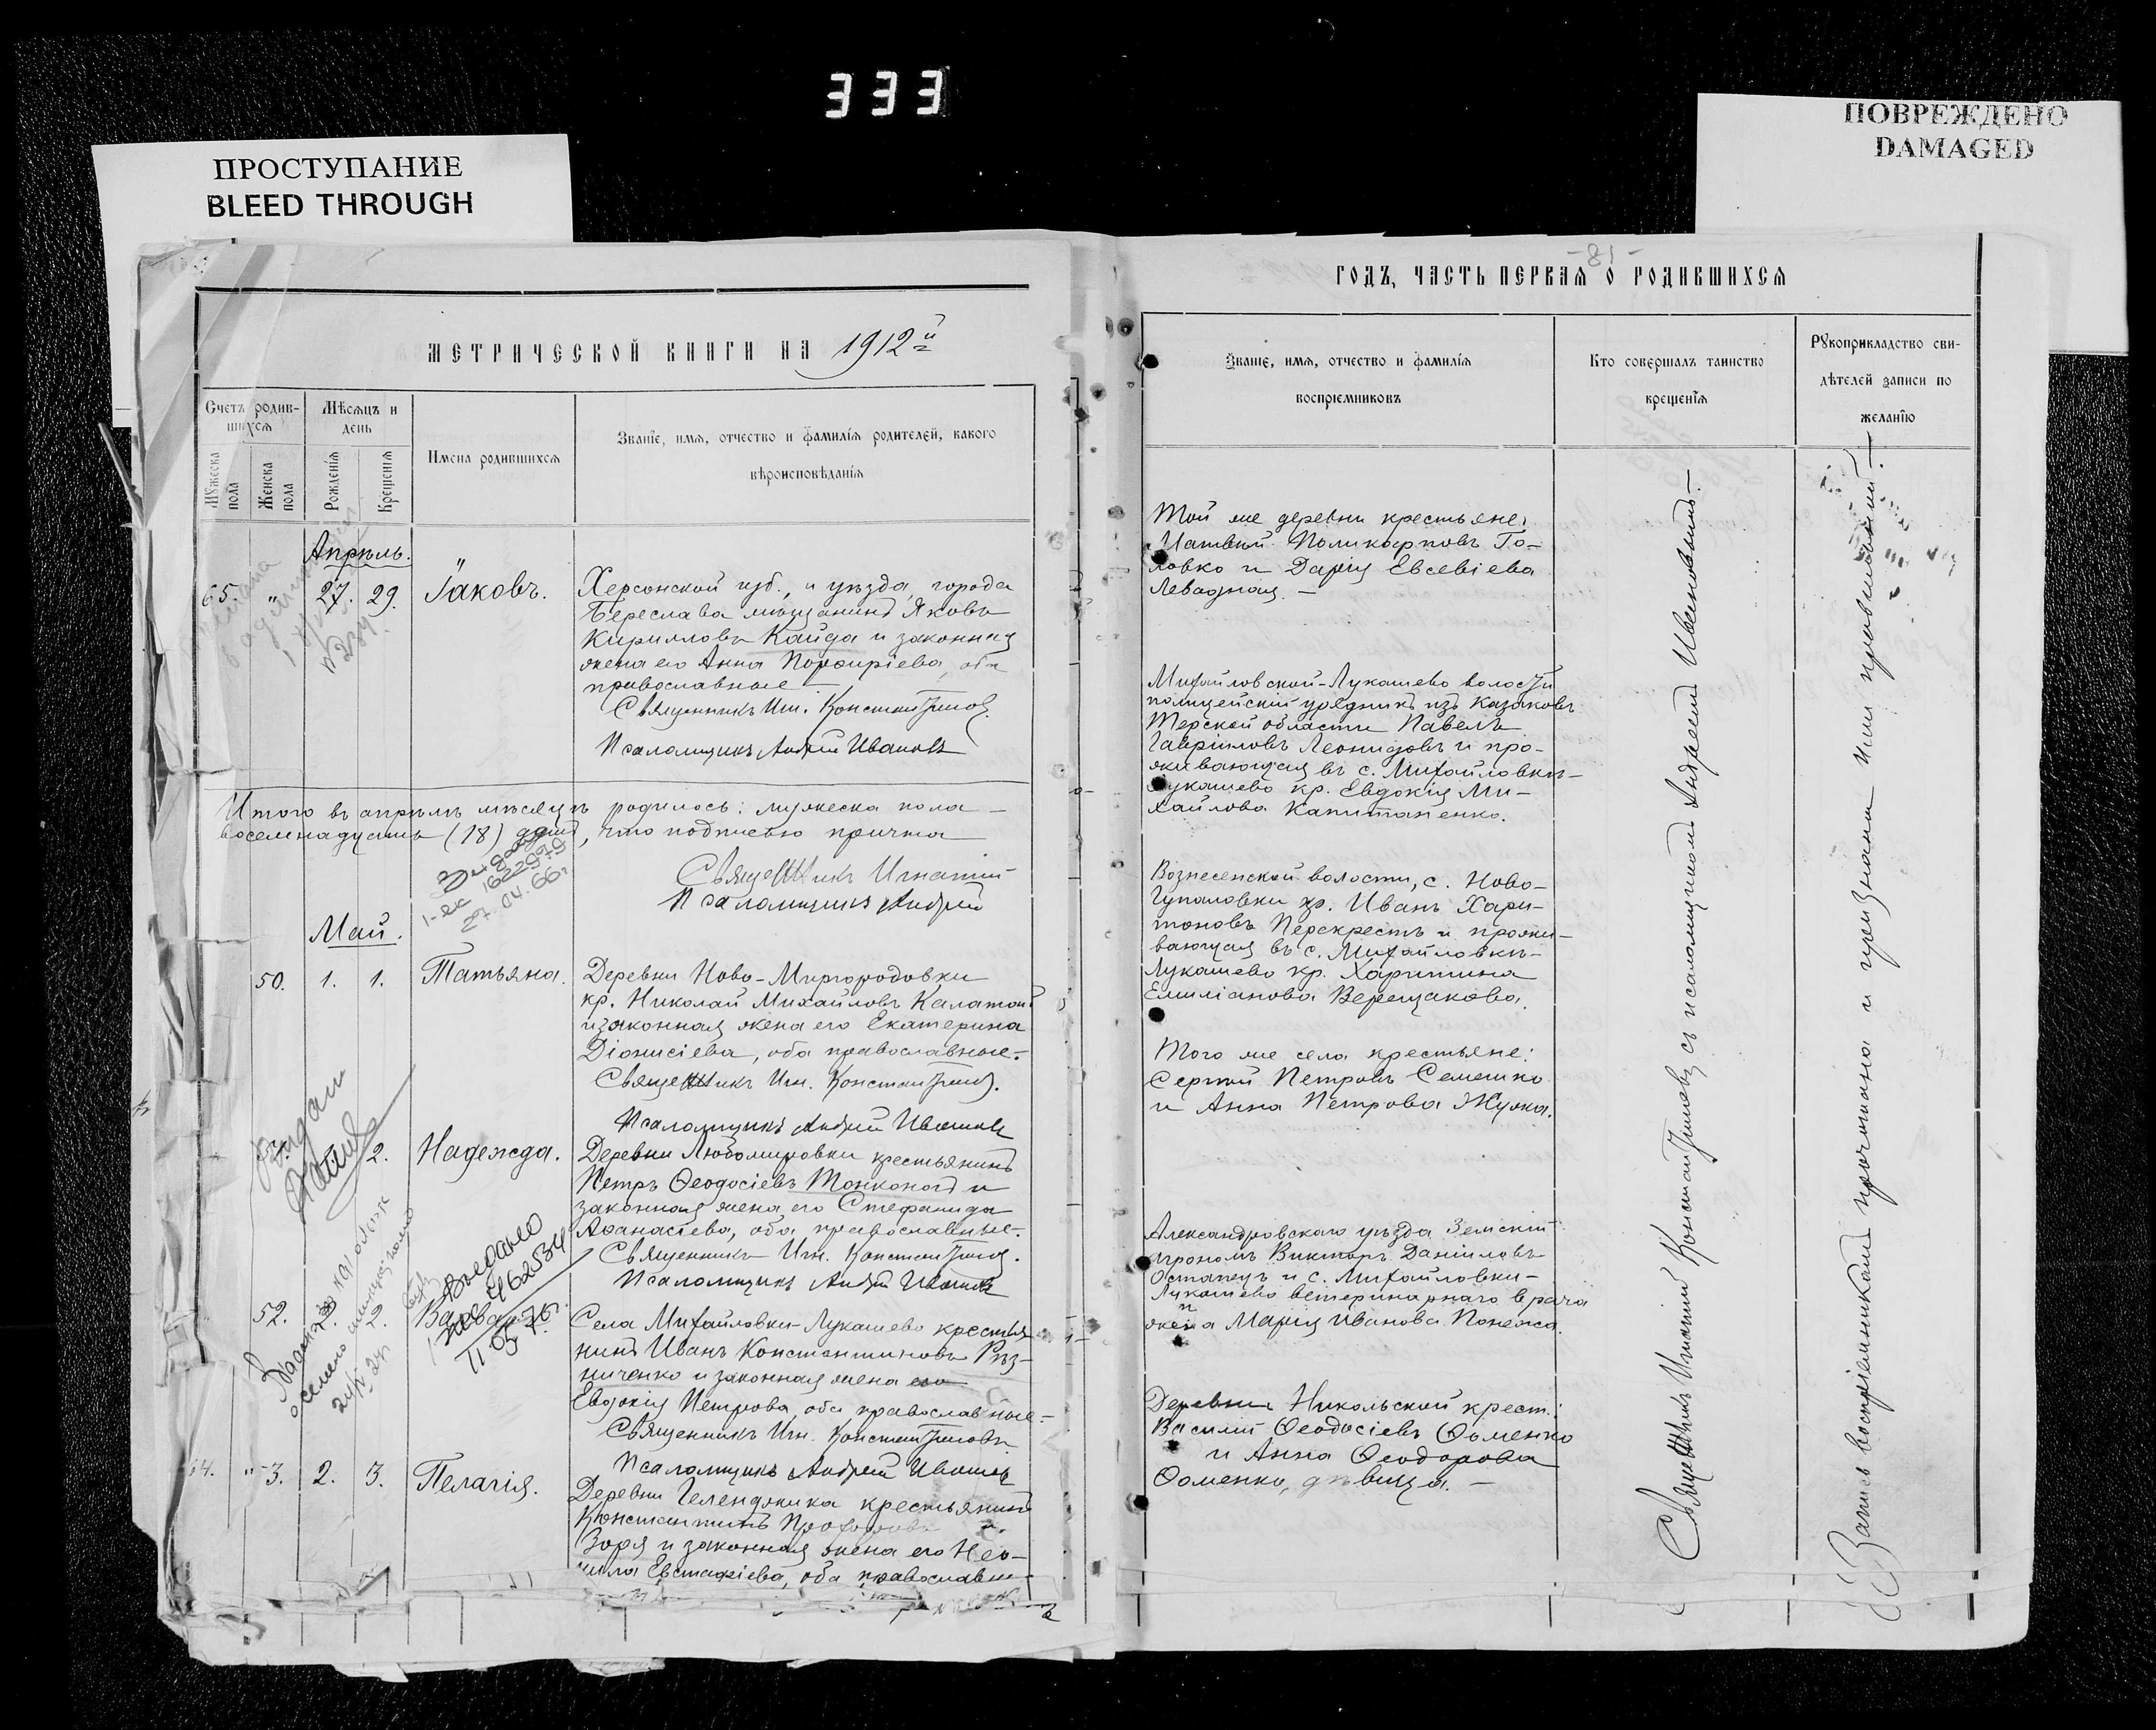 333
ПРОСТУПАНИЕ
BLEED THROUGH
ПОВРЕЖДЕНО
DAMAGED
МЕТРИЧЕСКОЙ КНИГИ НА 1912й
Счетъ родившихся
Мѣсяцъ и день
Мужеска пола
Женска пола
Рожденія
Крещенія
Имена родившихся
Званіе, имя, отчество и фамилія родителей, какого
вѣроисповѣданія
Апрѣль.
65. " 27. 29. Іаковъ.
Херсонской губ., и уѣзда, города
Береслава мѣщанинъ Яковъ
Кирилловъ Кайда и законная
жена его Анна Порфиріева, оба
православные
Священникъ Игн. Константиновъ.
Псаломщикъ Андрей Ивановъ
Итого въ апрѣлѣ мѣсяцѣ родилось: мужеска пола
восемнадцать (18) душъ, что подписью причта
Священникъ Игнатій
Псаломщикъ Андрей
1622979
27.04.66г
Май.
50. 1. 1. Татьяна.
Деревни Ново-Миргородовки
кр. Николай Михайловъ Калатай
и законная жена его Екатерина
Діонисіева, оба православные.
Священникъ Игн. Константиновъ.
Псаломщикъ Андрей Ивановъ
2. Надежда.
Деревни Любомировки крестьянинъ
Петръ Ѳеодосіевъ Тонконогъ и
законная жена его Стефанида
Аѳанасіева, оба православные.
Священникъ Игн. Константиновъ.
Псаломщикъ Андрей Ивановъ
52. 2. 2. Варвара
Села Михайловки-Лукашево крестья-
нинъ Иванъ Константиновъ Рѣз-
ниченко и законная жена его
Евдокія Петрова, оба православные.
Священникъ Игн. Константиновъ
Псаломщикъ Андрей Ивановъ
"53. 2. 3. Пелагія.
Деревни Геленджика крестьянинъ
Константинъ Прохоровъ
Зоря и законная жена его Нео-
нила Евстафіева, оба православн
-81-
ГОДЪ, ЧАСТЬ ПЕРВАЯ О РОДИВШИХСЯ
Званіе, имя, отчество и фамилія
воспріемниковъ
Кто совершалъ таинство
крещенія
Рукоприкладство сви-
дѣтелей записи по
желанію
Той же деревни крестьяне:
Матвей Поликарповъ Го-
ловко и Дарія Евсевіева
Левадная. —
Михайловской-Лукашево волости
полицейскій урядникъ изъ Казаковъ
Терской области Павелъ
Гавріиловъ Леонидовъ и про-
живающая въ с. Михайловкѣ-
Лукашево кр. Евдокія Ми-
хайлова Капитаненко.
Вознесенской волости, с. Ново-
Гупаловки кр. Иванъ Хари-
тоновъ Перекрестъ и прожи-
вающая въ с. Михайловкѣ-
Лукашево кр. Харитина
Емиліанова Верещакова.
Того же села крестьяне:
Сергій Петровъ Семешко
и Анна Петрова Жулка.
Александровскаго уѣзда Земскій
агрономъ Викторъ Даніиловъ
Остапецъ и с. Михайловки-
Лукашево ветеринарнаго врача
жена Марія Иванова Понежа.
Деревни Никольской крест.:
Василій Ѳеодосіевъ Ѳоменко
и Анна Ѳеодорова
Ѳоменко, дѣвица. —
Священникъ Игнатій Константиновъ съ псаломщикомъ Андреемъ Ивановымъ.—
Запись воспріемниками прочитана и признана ими правильной.—